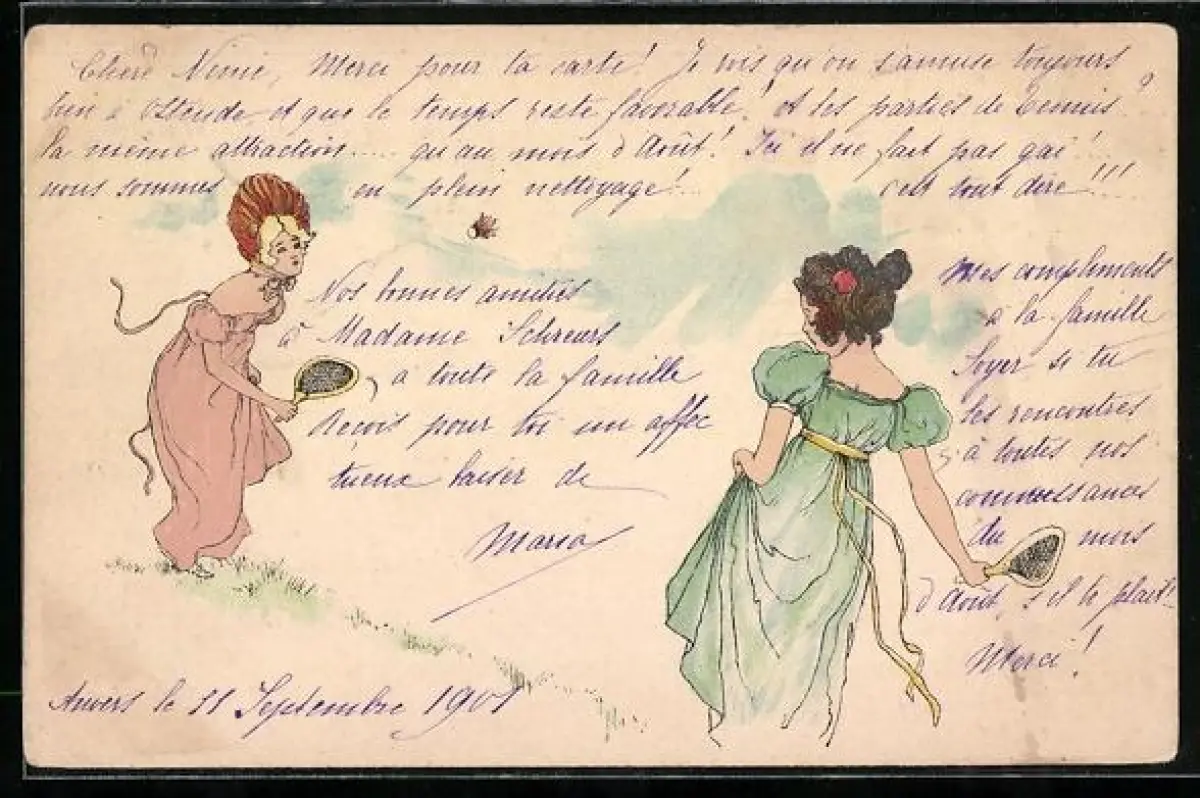 Chère Ninie, Merci pour ta carte! Je vois qu'on s'amuse toujours
bien à Ostende et que le temps reste favorable! et les parties de Tennis?...
la même attraction.... qu'au mois d'Août! Ici il ne fait pas gai!..
nous sommes en plein nettoyage!.. c'est tout dire!!!
Nos bonnes amitiés
à Madame Schreurs
à toute la famille
Reçois pour toi un affec
tueux baiser de
Maria
Mes compliments
à la famille
Soyer si tu
les rencontres
à toutes nos
connaissances
du mois
d'Août, s'il te plait!
Merci!
Anvers le 11 Septembre 1901